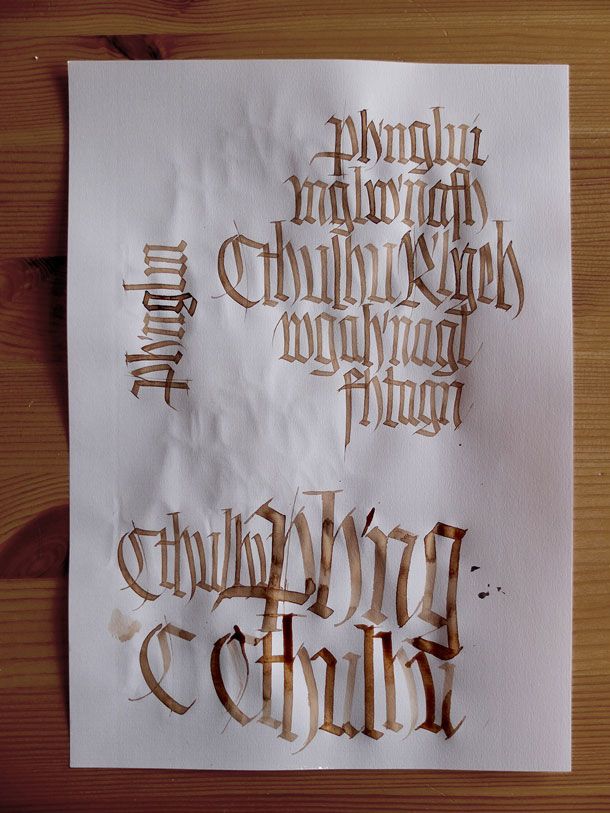 ph'nglui
mglw'nafh
Cthulhu R'lyeh
wgah'nagl
fhtagn
ph'nglui
Cthulhu ph'ng
C Cthulhu